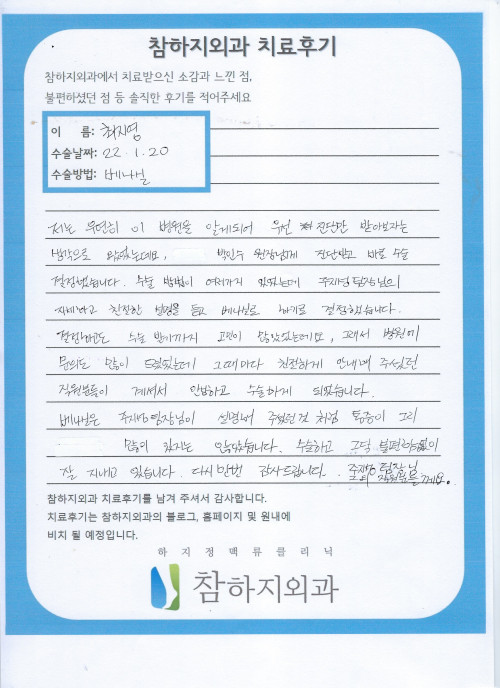 참하지외과 치료후기
참하지외과에서 치료받으신 소감과 느낀 점,
불편하셨던 점 등 솔직한 후기를 적어주세요
이 름: 최지영
수술날짜: 22. 1. 20
수술방법: 베나실
저는 우연히 이 병원을 알게되어 우선 진단만 받아보자는
생각으로 왔었는데요, 박인수 원장님께 진단받고 바로 수술
결정했습니다. 수술 방법이 여러가지 있었는데 주재성 팀장님의
자세하고 친절한 설명을 듣고 베나실로 하기로 결정했습니다.
결정하고도 수술 받기까지 고민이 많았었는데요, 그래서 병원에
문의도 많이 했었는데 그때마다 친절하게 안내해 주셨던
직원분들이 계셔서 안심하고 수술하게 되었습니다.
베나실은 팀장님이 설명해 주셨던 것 처럼 통증이 그리
많이 있지는 않았습니다. 수술하고 그닥 불편함없이
잘 지내고 있습니다. 다시 한번 감사드립니다. 팀장님
그 외 직원분들께요.
참하지외과 치료후기를 남겨 주셔서 감사합니다.
치료후기는 참하지외과의 블로그, 홈페이지 및 원내에
비치 될 예정입니다.
하지정맥류클리닉
참하지외과